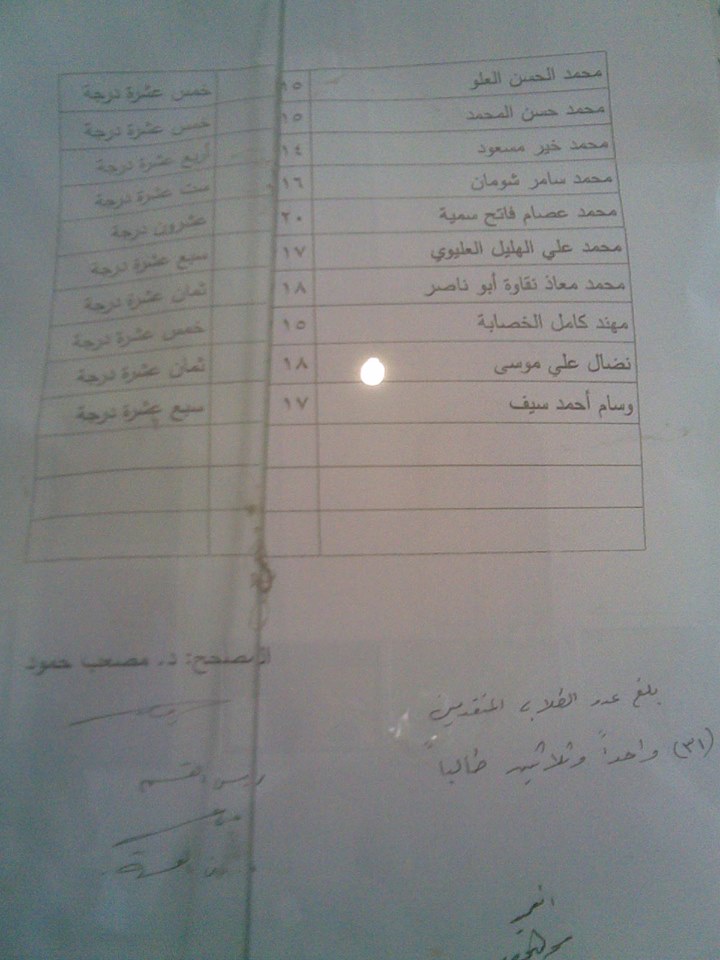 محمد الحسن العلو ١٥ خمس عشرة درجة
محمد حسن المحمد ١٥ خمس عشرة درجة
محمد خير مسعود ١٤ أربع عشرة درجة
محمد سامر شومان ١٦ ست عشرة درجة
محمد عصام فاتح سمية ٢٠ عشرون درجة
محمد علي الهليل العليوي ١٧ سبع عشرة درجة
محمد معاذ نقاوة أبو ناصر ١٨ ثمان عشرة درجة
مهند كامل الخصابة ١٥ خمس عشرة درجة
نضال علي موسى ١٨ ثمان عشرة درجة
وسام أحمد سيف ١٧ سبع عشرة درجة
المصحح: د. مصعب حمود
بلغ عدد الطلاب المتقدمين
(٣١) واحداً وثلاثين طالباً
رئيس القسم